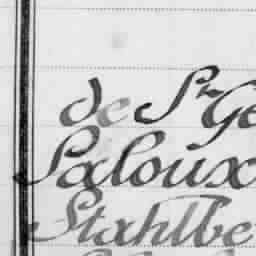 de St Ge
Saloux
Stahlbe